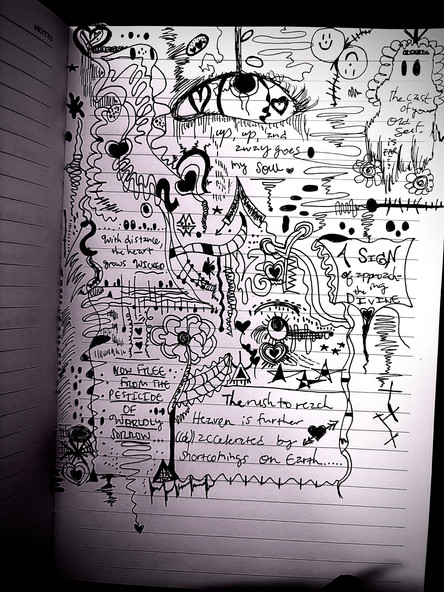 NOTES
up, up, and
away goes
my soul
The cast
of your
old
self
is
FAR
with distance,
the heart
grows WICKED
A SIGN
of approach-
ing
the
DIVINE
NOW FREE
FROM THE
PESTICIDE
OF
WORLDLY
SORROW
The rush to reach
Heaven is further
accelerated by
shortcomings on Earth.....